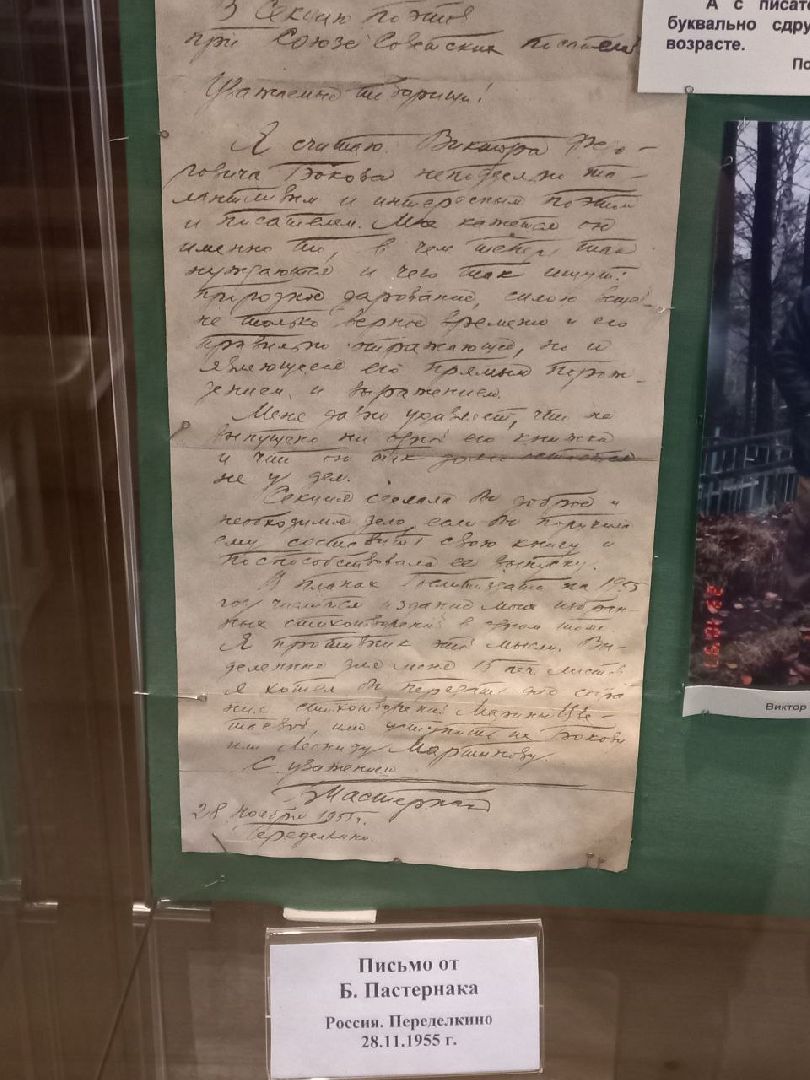 В Секцию поэтов
при Союзе Советских писателей
Уважаемые товарищи!
Я считаю Виктора Фео-
ровича Бокова неподдельно та-
лантливым и интересным поэтом
и писателем. Мне кажется он
именно то, в чем теперь так
нуждаются и чего так ищут:
природное дарование, силою вещей
не только верное времени и его
правильно отражающее, но и
являющееся его прямым порож-
дением и выражением.
Меня давно удивляет, что не
выпущено ни одной его книжки
и что он так долго остается
не у дел.
Секция сделала бы доброе и
необходимое дело, если бы поручила
ему составить свою книгу и
поспособствовала ее выпуску.
В планах Гослитиздата на 1955
год числится издание моих избран-
ных стихотворений в одном томе.
Я противник этой мысли. Вы-
деленные для меня 15 печ. листов
я хотел бы передать на собра-
ние стихотворений Марины Цве-
таевой, или уступить их Бокову
или Леониду Мартынову.
С уважением
Б Пастернак
28 ноября 1955 г.
Переделкино.
А с писате
буквально сдру
возрасте.
По
Виктор
Письмо от
Б. Пастернака
Россия. Переделкино
28.11.1955 г.